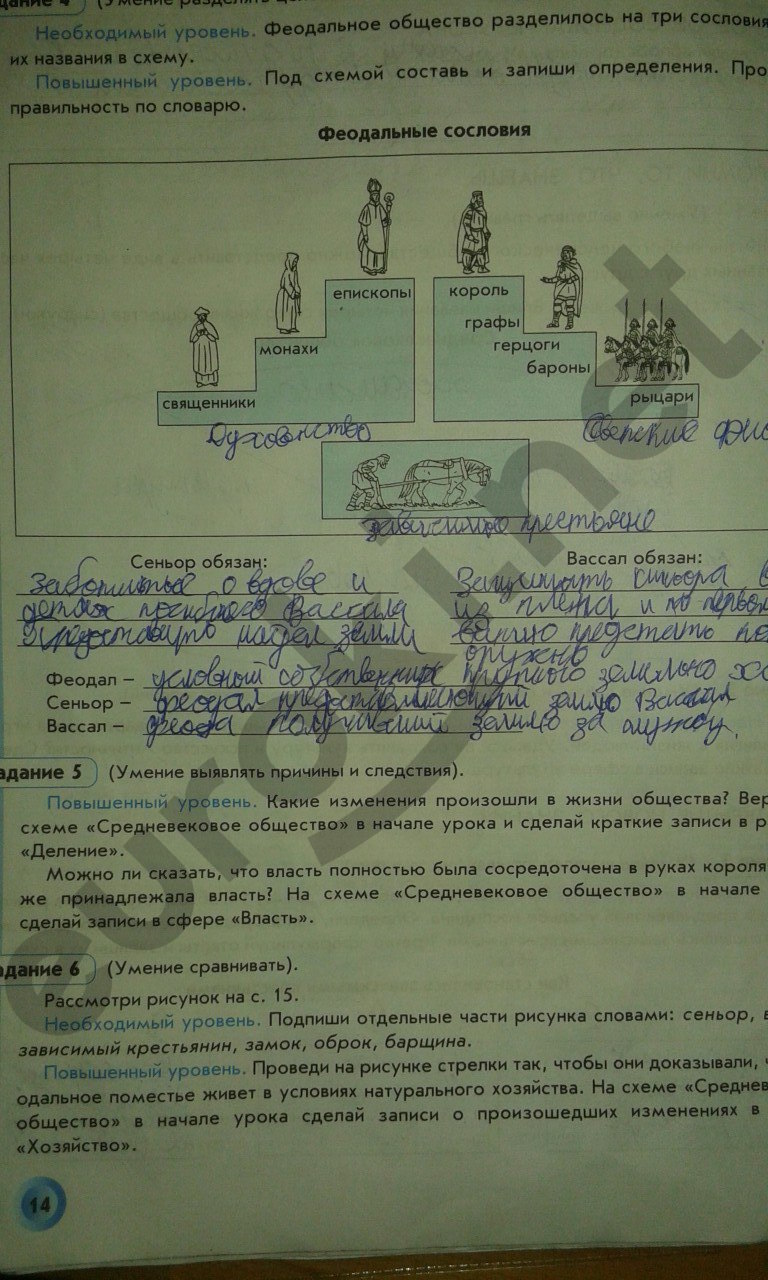 дание 4 (Умение разделять це
Необходимый уровень. Феодальное общество разделилось на три сословия
их названия в схему.
Повышенный уровень. Под схемой составь и запиши определения. Про
правильность по словарю.
Феодальные сословия
епископы
монахи
священники
король
графы
герцоги
бароны
рыцари
Духовенство
Светские фео
зависимые крестьяне
Сеньор обязан:
Заботиться о вдове и
детях погибшего Вассала
и предоставить надел земли
Вассал обязан:
Защищать сеньора
из плена и по первом
предстать
оружно
Феодал – условный собственник крупного земельно хо
Сеньор – феодал предоставляющий землю Вассал
Вассал – феода получивший землю за службу.
адание 5 (Умение выявлять причины и следствия).
Повышенный уровень. Какие изменения произошли в жизни общества? Вер
схеме «Средневековое общество» в начале урока и сделай краткие записи в р
«Деление».
Можно ли сказать, что власть полностью была сосредоточена в руках короля
же принадлежала власть? На схеме «Средневековое общество» в начале
сделай записи в сфере «Власть».
адание 6 (Умение сравнивать).
Рассмотри рисунок на с. 15.
Необходимый уровень. Подпиши отдельные части рисунка словами: сеньор, в
зависимый крестьянин, замок, оброк, барщина.
Повышенный уровень. Проведи на рисунке стрелки так, чтобы они доказывали, ч
одальное поместье живет в условиях натурального хозяйства. На схеме «Среднев
общество» в начале урока сделай записи о произошедших изменениях в
«Хозяйство».
14